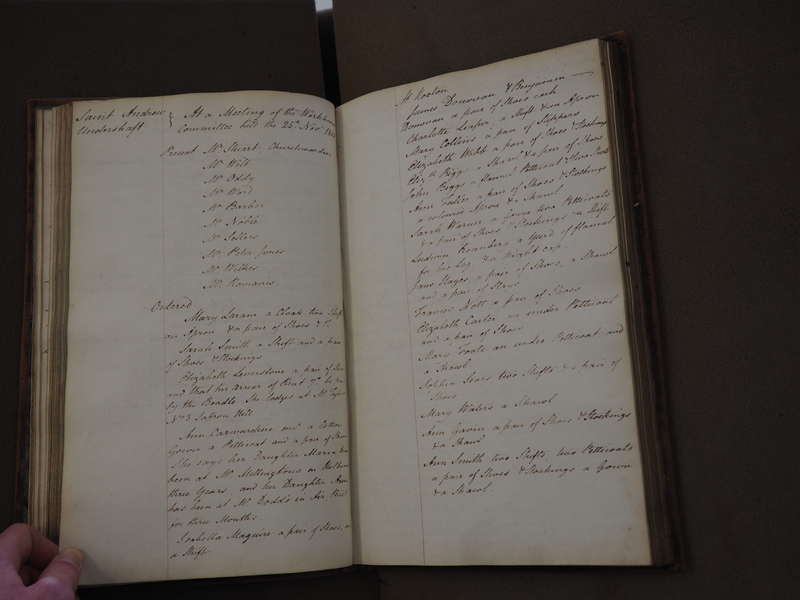 Saint Andrew Undershaft } At a Meeting of the Workhouse
Committee held the 25th Novr
Present Mr Stuart Churchwarden
Mr Wilk
Mr Oddy
Mr Ward
Mr Barber
Mr Noble
Mr Sellers
Mr Peter Jones
Mr Wilkes
Mr Romanis
Ordered
Mary Laram a Cloak two Shifts
an Apron & a pair of Shoes &c
Sarah Smith a Shift and a pair
of Shoes & Stockings
Elizabeth Leverstone a pair of Shoes
and that her arrear of Rent be
by the Beadle She lodges at Mr
No 3 Safron Hill
Ann Carwardine a Cotton
Gown a Petticoat and a pair of Shoes
She says her Daughter Maria has
been at Mr Millingtons in
three Years, and her Daughter Ann
has been at Mr Dodds in
for three Months.
Isabella Maguire a pair of Shoes, &
a Shift
At Hoxton
James Donovan & Benjamin
Donovan a pair of Shoes each
Charlotte a Shift & an Apron
Mary Collins a pair of Slippers
Elizabeth Webb a pair of Shoes & Stockings
Elizth Biggs a Shawl & a pair of Shoes
John Biggs a flannel Petticoat & two
Ann Tuller a pair of Shoes & Stockings
a coloured Apron & a Shawl
Sarah Warner a Gown two Petticoats
& a pair of Shoes & Stockings & a Shift
Ludwin a Yard of flannel
for his Leg & a Night cap.
Jane Hayes, a pair of Shoes, a Shawl
and a pair of Stays
Frances Nott a pair of Shoes
Elizabeth Carter an under Petticoat
and a pair of Shoes
Mary Foote an under Petticoat and
a Shawl.
Sophia Sears two Shifts & a pair of
Shoes
Mary Waters a Shawl
Ann Gavin a pair of Shoes & Stockings
& a Shawl
Ann Smith two Shifts, two Petticoats
a pair of Shoes & Stockings a Gown
& a Shawl.